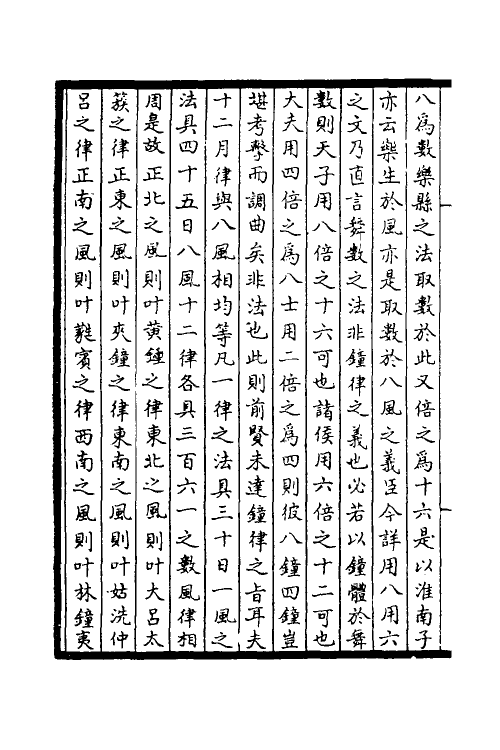 八為數樂縣之法取數於此又倍之為十六是以淮南子
亦云樂生於風亦是取數於八風之義臣今詳用八用六
之文乃直言舞數之法非鐘律之義也必若以鐘體於舞
數則天子用八倍之十六可也諸侯用六倍之十二可也
大夫用四倍之為八士用二倍之為四則彼八鐘四鐘豈
堪考擊而調曲矣非法也此則前賢未達鐘律之旨耳夫
十二月律與八風相均等凡一律之法具三十日一風之
法具四十五日八風十二律各具三百六一之數風律相
周是故正北之風則叶黄鍾之律東北之風則叶大呂太
蔟之律正東之風則叶夾鐘之律東南之風則叶姑洗仲
呂之律正南之風則叶蕤賓之律西南之風則叶林鐘夷